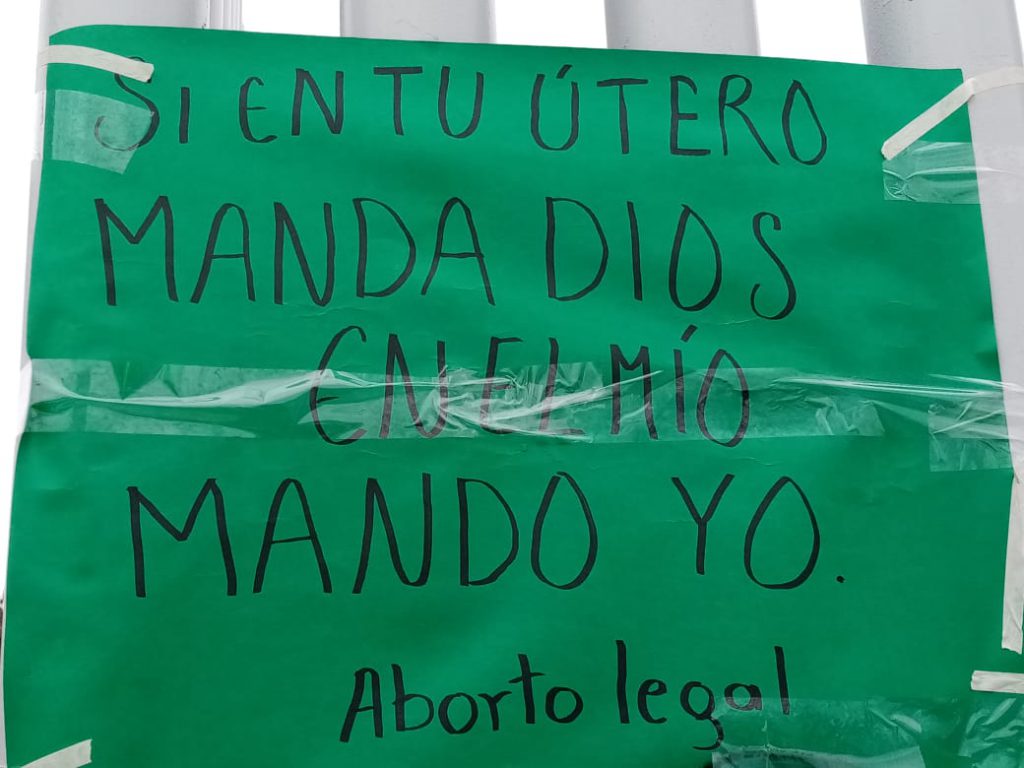 SI EN TU ÚTERO
MANDA DIOS
EN EL MÍO
MANDO YO.
Aborto legal